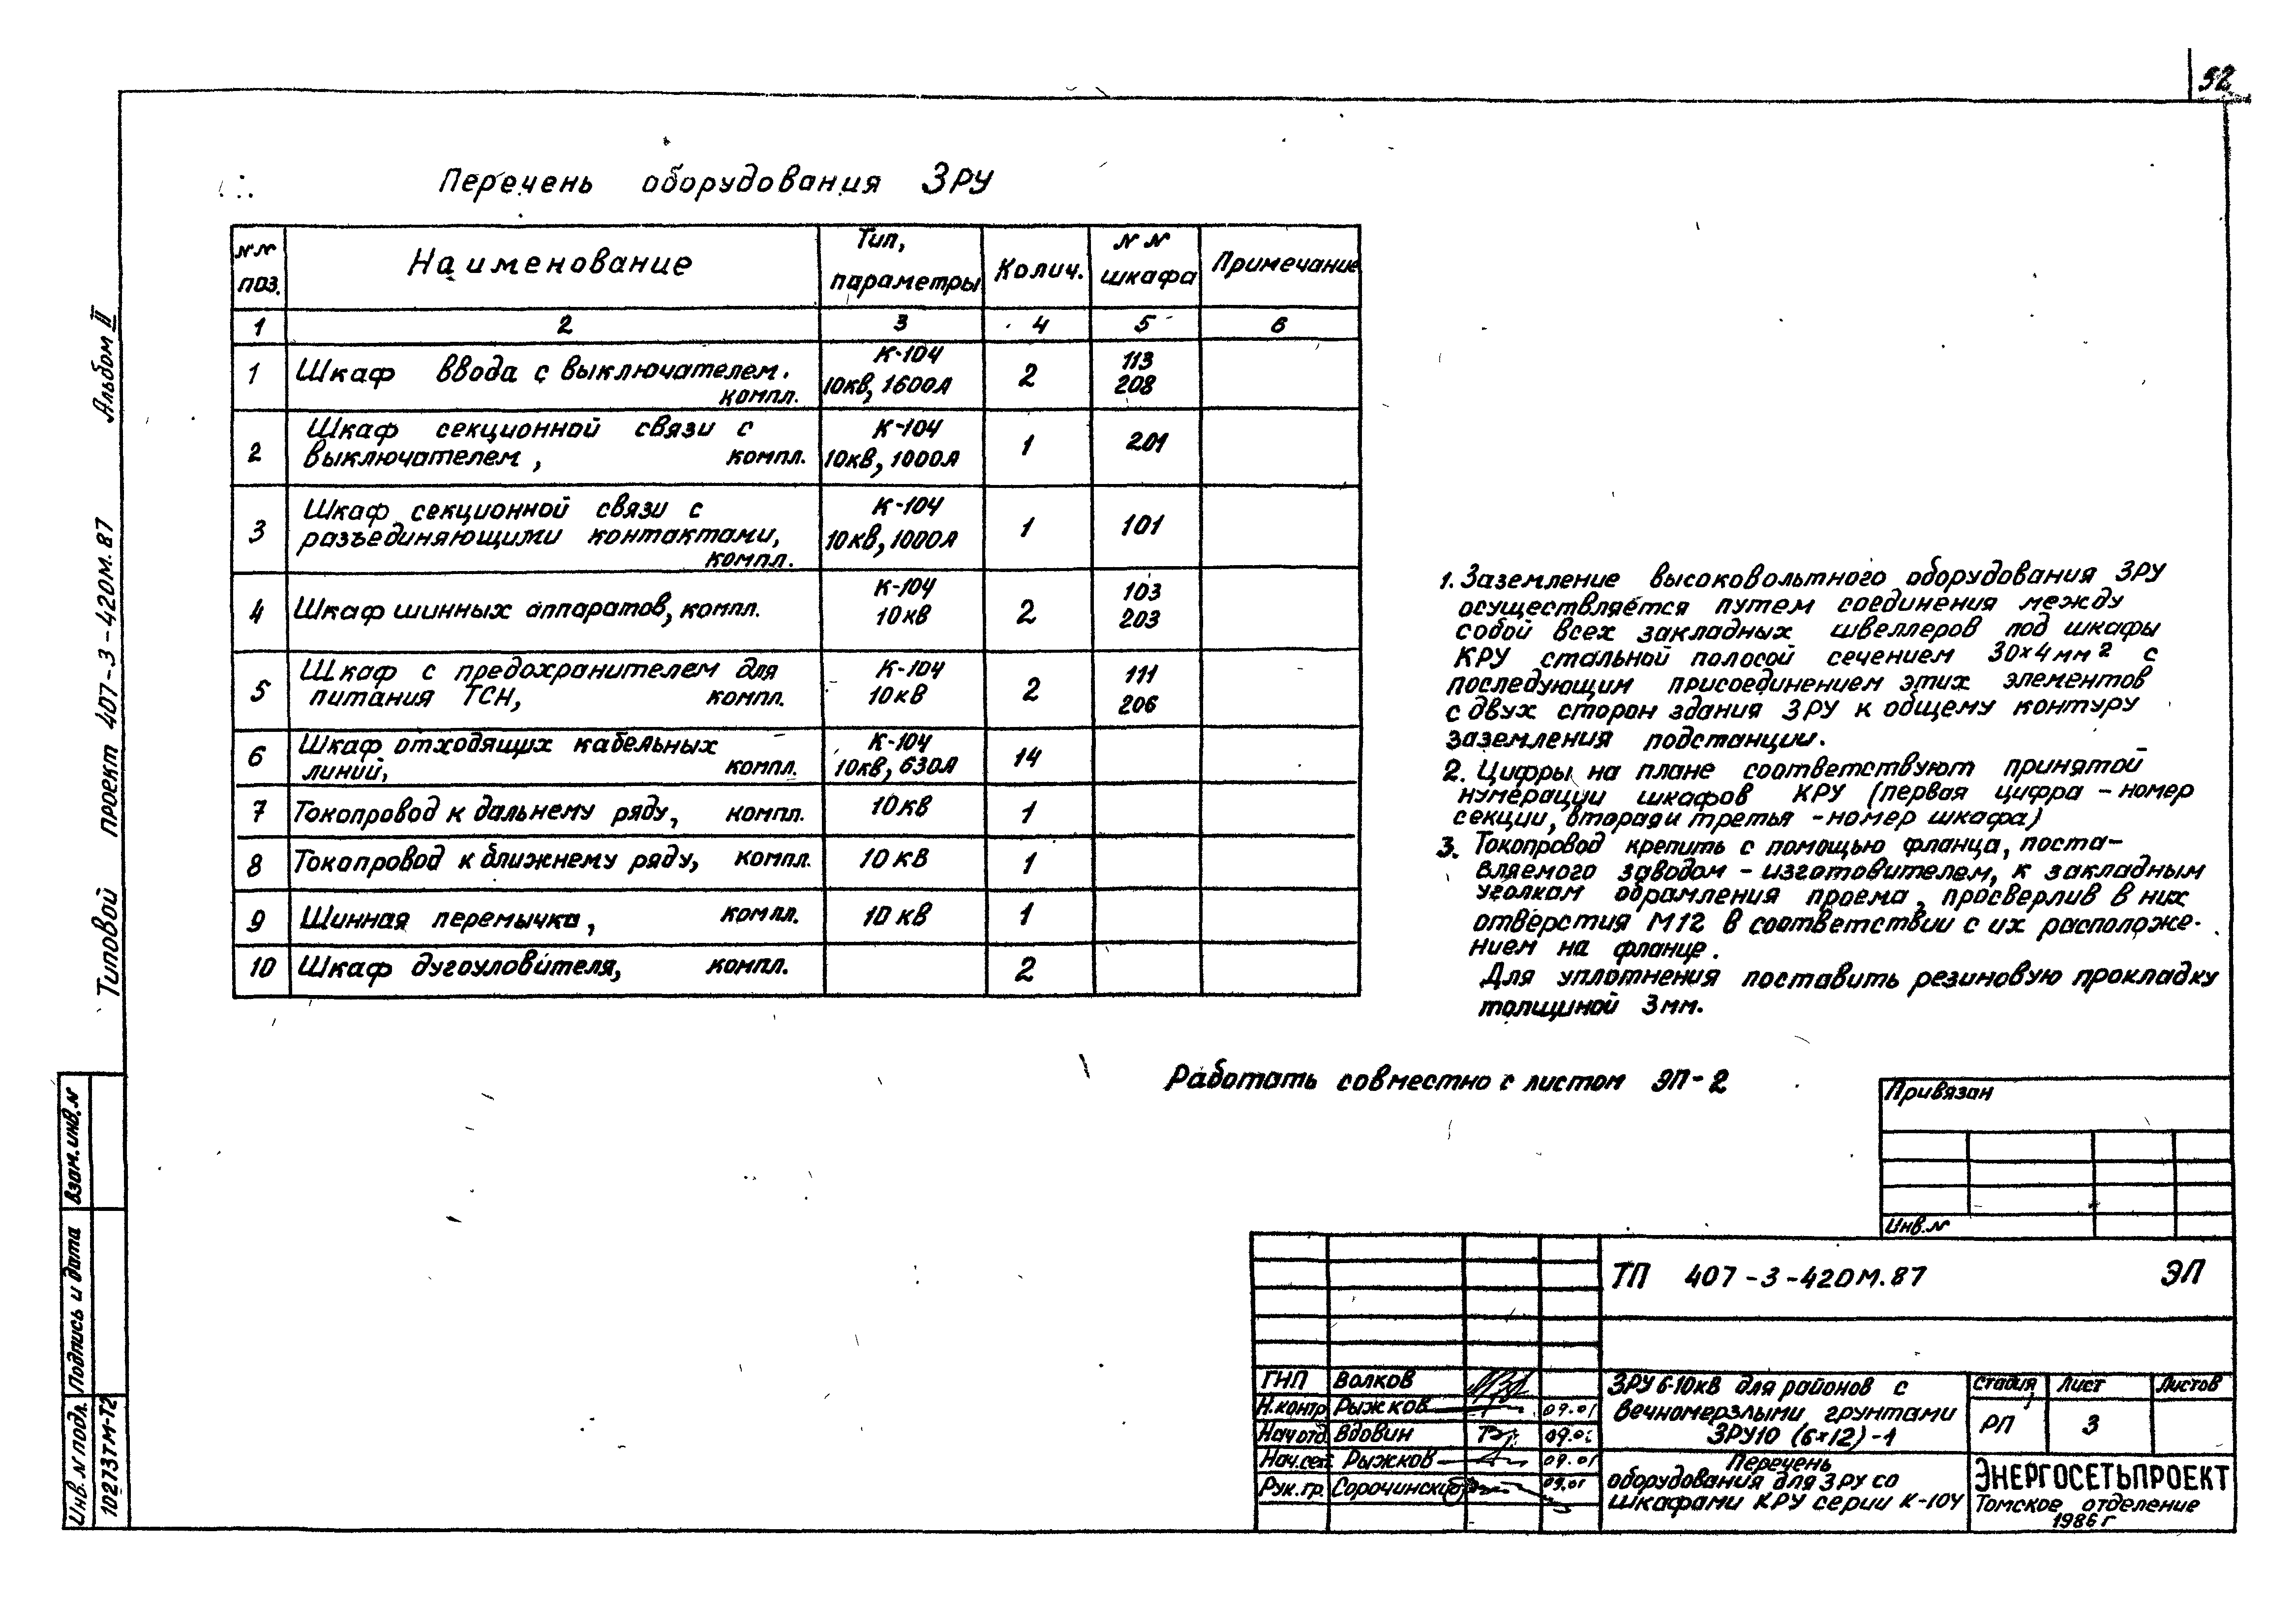 52
Перечень оборудования ЗРУ
NN поз.
Наименование
Тип, параметры
Колич.
NN шкафа
Примечание
1 2 3 4 5 6
1 Шкаф ввода с выключателем. компл. К-104 10кВ, 1600А 2 113 208
2 Шкаф секционной связи с выключателем, компл. К-104 10кВ, 1000А 1 201
3 Шкаф секционной связи с разъединяющими контактами, компл. К-104 10кВ, 1000А 1 101
4 Шкаф шинных аппаратов, компл. К-104 10кВ 2 103 203
5 Шкаф с предохранителем для питания ТСН, компл. К-104 10кВ 2 111 206
6 Шкаф отходящих кабельных линий, компл. К-104 10кВ, 630А 14
7 Токопровод к дальнему ряду, компл. 10кВ 1
8 Токопровод к ближнему ряду, компл. 10кВ 1
9 Шинная перемычка, компл. 10кВ 1
10 Шкаф дугоуловителя, компл. 2
1. Заземление высоковольтного оборудования ЗРУ
осуществляется путем соединения между
собой всех закладных швеллеров под шкафы
КРУ стальной полосой сечением 30×4мм2 с
последующим присоединением этих элементов
с двух сторон здания ЗРУ к общему контуру
заземления подстанции.
2. Цифры на плане соответствуют принятой
нумерации шкафов КРУ (первая цифра - номер
секции, вторая и третья - номер шкафа)
3. Токопровод крепить с помощью фланца, поста-
вляемого заводом - изготовителем, к закладным
уголкам обрамления проема, просверлив в них
отверстия М12 в соответствии с их расположе-
нием на фланце.
Для уплотнения поставить резиновую прокладку
толщиной 3мм.
Работать совместно с листом ЭП-2
Привязан
Инв.N
ТП 407-3-420м.87 ЭП
ГНП Волков
Н.контр Рыжков 09.01
Нач отд. Вдовин
Нач.сек. Рыжков 09.01
Рук.гр. Сорочинский 09.01
ЗРУ 6-10кВ для районов с
вечномерзлыми грунтами
ЗРУ10 (6×12)-1
Стадия Лист Листов
РП 3
Перечень
оборудования для ЗРУ со
шкафами КРУ серии К-104
ЭНЕРГОСЕТЬПРОЕКТ
Томское отделение
1986г
Типовой проект 407-3-420м.87 Альбом II
Взам.инв.N
Подпись и дата
Инв.N подл.
10273ТМ-Т2